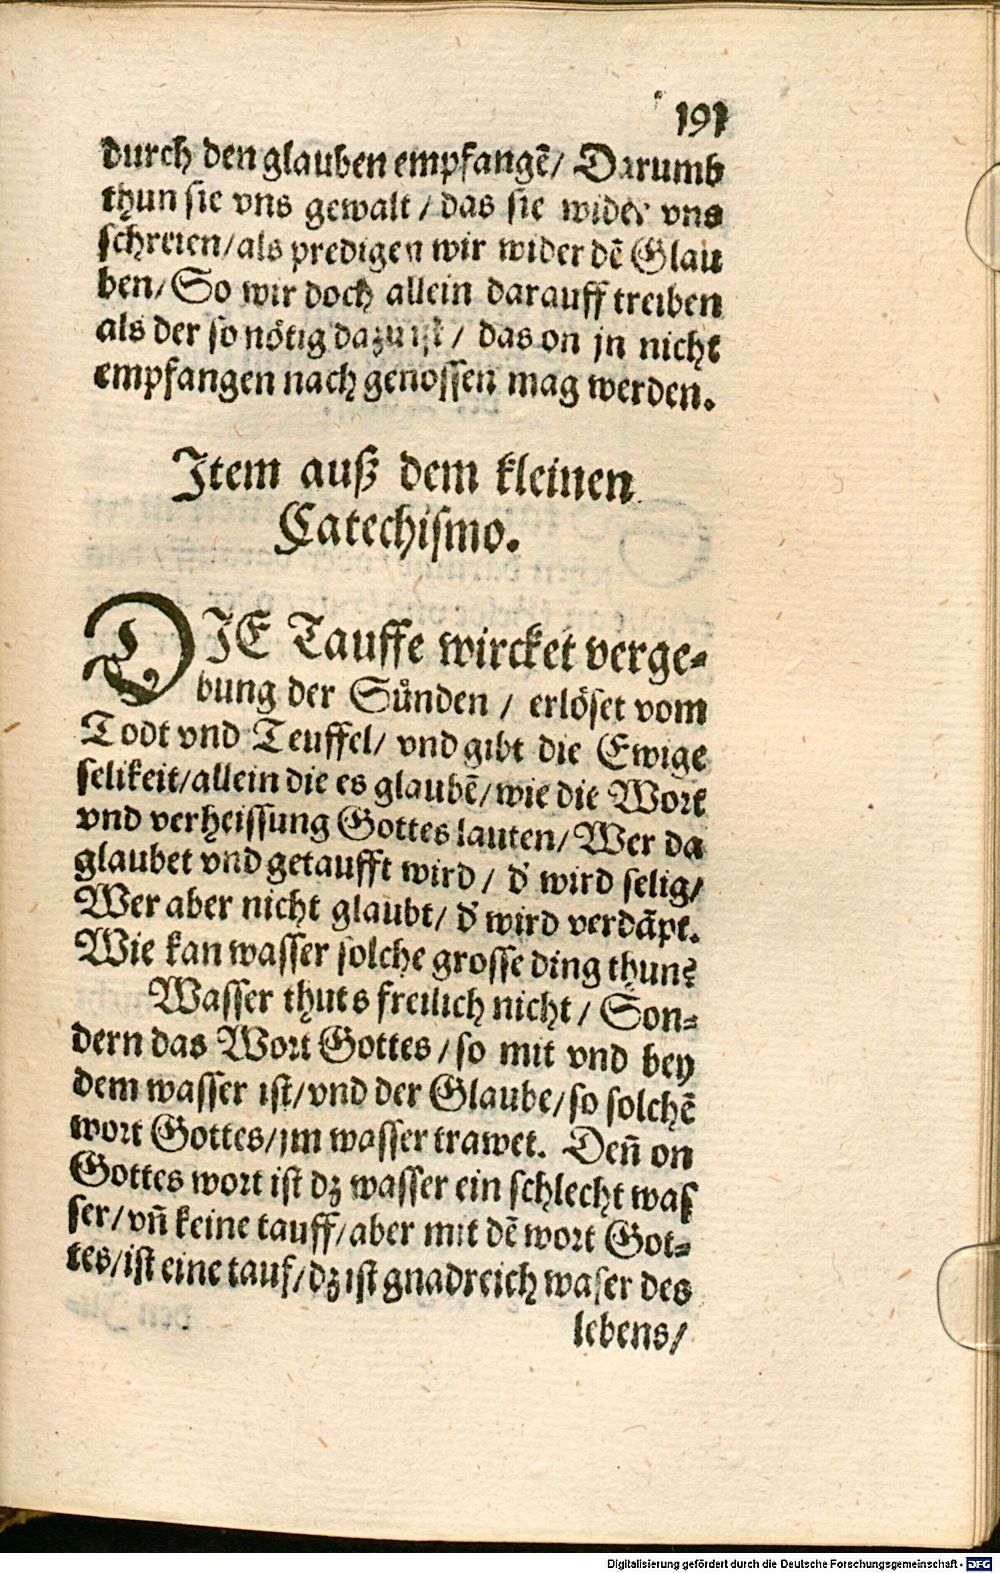 191
durch den glauben empfangē/ Darumb
thun sie vns gewalt / das sie wider vns
schreien/als predigen wir wider dē Glau
ben/ So wir doch allein darauff treiben
als der so nötig dazu ist / das on jn nicht
empfangen nach genossen mag werden.
Item auß dem kleinen
Catechismo.
DIE Tauffe wircket verge-
bung der Sünden / erlöset vom
Todt vnd Teuffel/ vnd gibt die Ewige
selikeit/allein die es glaubē/wie die Wort
vnd verheissung Gottes lauten/ Wer da
glaubet vnd getaufft wird / d' wird selig/
Wer aber nicht glaubt/ d' wird verdāpt.
Wie kan wasser solche grosse ding thun?
Wasser thuts freilich nicht / Son-
dern das Wort Gottes / so mit vnd bey
dem wasser ist/vnd der Glaube/so solchē
wort Gottes/jm wasser trawet. Deñ on
Gottes wort ist dz wasser ein schlecht was
ser/vñ keine tauff/aber mit dē wort Got-
tes/ist eine tauf/dz ist gnadreich waser des
lebens/
Digitalisierung gefördert durch die Deutsche Forschungsgemeinschaft - DFG